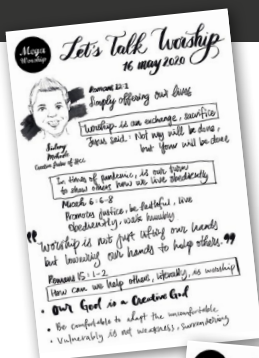 Mega
Worship
Let's Talk Worship
16 may 2020
Romans 12:1
Simply offering our lives
Worship is an exchange, sacrifice
Jesus said: Not my will be done,
but Your will be done
Sidney
Mohede
In times of pandemic, is our turn
to show others how we live obediently
Micah 6:6-8
Promotes justice, be faithful, live
obediently, walk humbly
"Worship is not just lifting our hands
but lowering our hands to help others."
Romans 15:1-2
How can we help others, literally, is worship
• Our God is a Creative God
• Be comfortable to adapt the uncomfortable
• Vulnerably is not weakness, surrendering